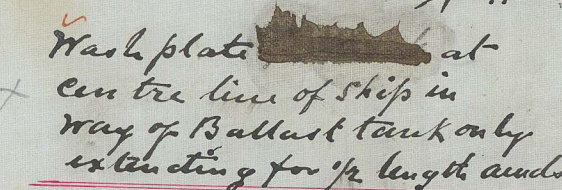 Wash plate at
centre line of ship in
way of Ballast tank only
extending for 1/2 length amids